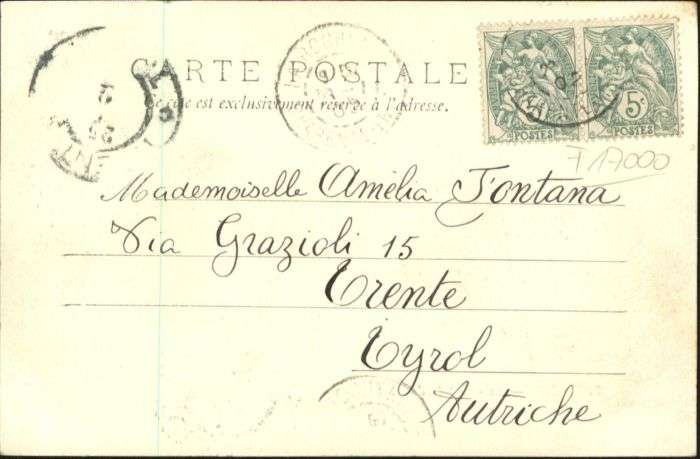 CARTE POSTALE
Ce côté est exclusivement réservé à l'adresse.
5c
POSTES
POSTES
F 17000
Mademoiselle Amélia Fontana
Via Grazioli 15
Trente
Tyrol
Autriche